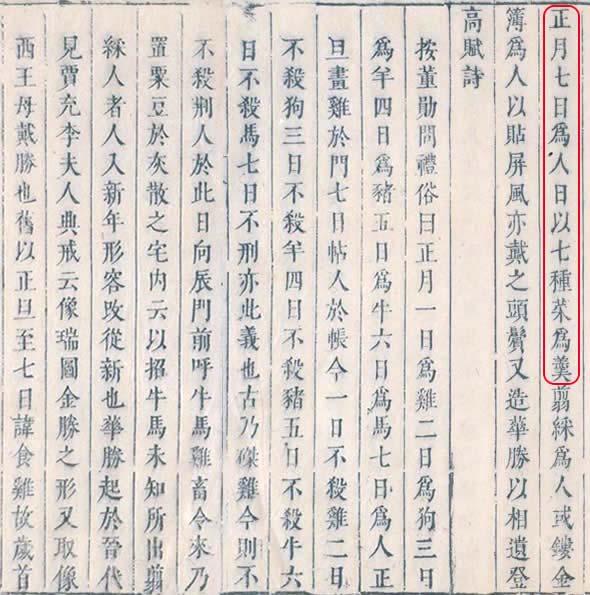 正月七日爲人日以七種菜爲羹翦綵爲人或鏤金
簿爲人以貼屏風亦戴之頭鬢又造華勝以相遺登
高賦詩
按董勛問禮俗曰正月一日爲雞二日爲狗三日
爲羊四日爲豬五日爲牛六日爲馬七日爲人正
旦畫雞於門七日帖人於帳今一日不殺雞二日
不殺狗三日不殺羊四日不殺豬五日不殺牛六
日不殺馬七日不刑亦此義也古乃磔雞今則不
不殺荆人於此日向辰門前呼牛馬雞畜令來乃
置粟豆於灰散之宅内云以招牛馬未知所出翦
綵人者人入新年形容改從新也華勝起於晉代
見賈充李夫人典戒云像瑞圖金勝之形又取像
西王母戴勝也舊以正旦至七日諱食雞故歲首